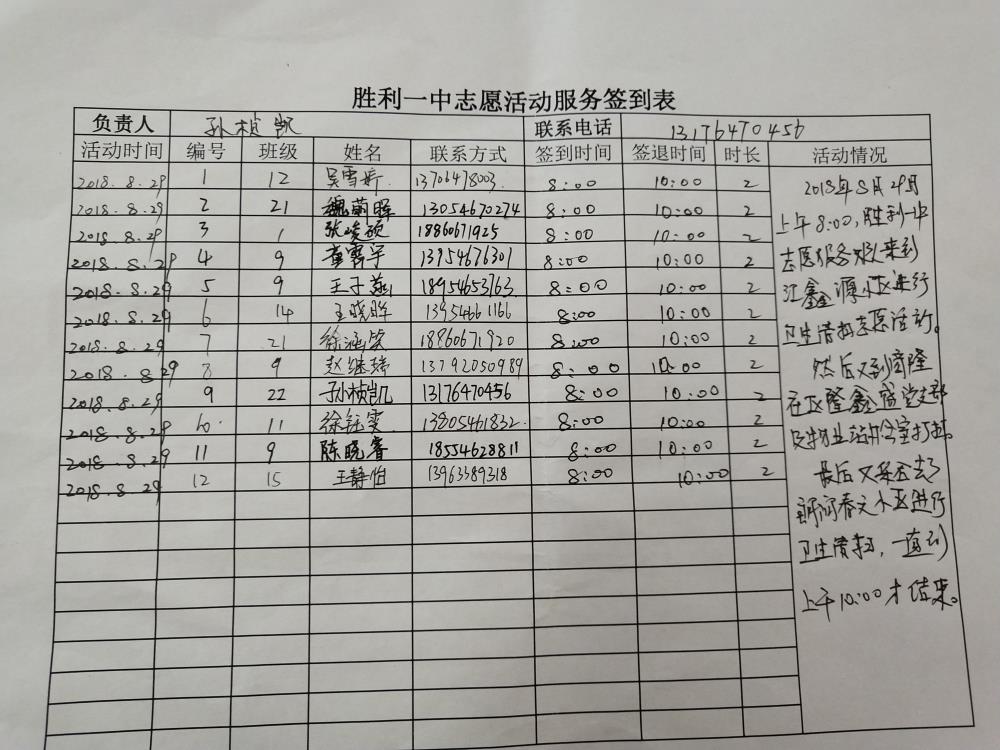 胜利一中志愿活动服务签到表
负责人 孙桢凯 联系电话 13176470456
活动时间 编号 班级 姓名 联系方式 签到时间 签退时间 时长 活动情况
2018.8.29 1 12 吴雪婷 13706478003. 8:00 10:00 2
2018.8.29 2 21 魏蔚晖 13054670274 8:00 10:00 2
2018.8.29 3 1 张峻硕 18860671925 8:00 10:00 2
2018.8.29 4 9 董霄宇 13954676301 8:00 10:00 2
2018.8.29 5 9 王子 18954653763 8:00 10:00 2
2018.8.29 6 14 王晓晖 13954661166 8:00 10:00 2
2018.8.29 7 21 徐涵笑 18860671920 8:00 10:00 2
2018.8.29 8 9 赵继 13792050989 8:00 10:00 2
2018.8.29 9 22 孙桢凯 13176470456 8:00 10:00 2
2018.8.29 10. 11 徐钰雯 13805461832. 8:00 10:00 2
2018.8.29 11 9 陈晓睿 18554628811 8:00 10:00 2
2018.8.29 12 15 王静怡 13963389318 8:00 10:00 2
2018年8月29日
上午8:00,胜利一中
志愿服务队来到
江鑫源小区进行
卫生清扫志愿活动。
然后又到
在区隆鑫盛党支部
及物业站办公室打扫。
最后又去了
春天小区进行
卫生清扫,一直到
上午10:00才结束。